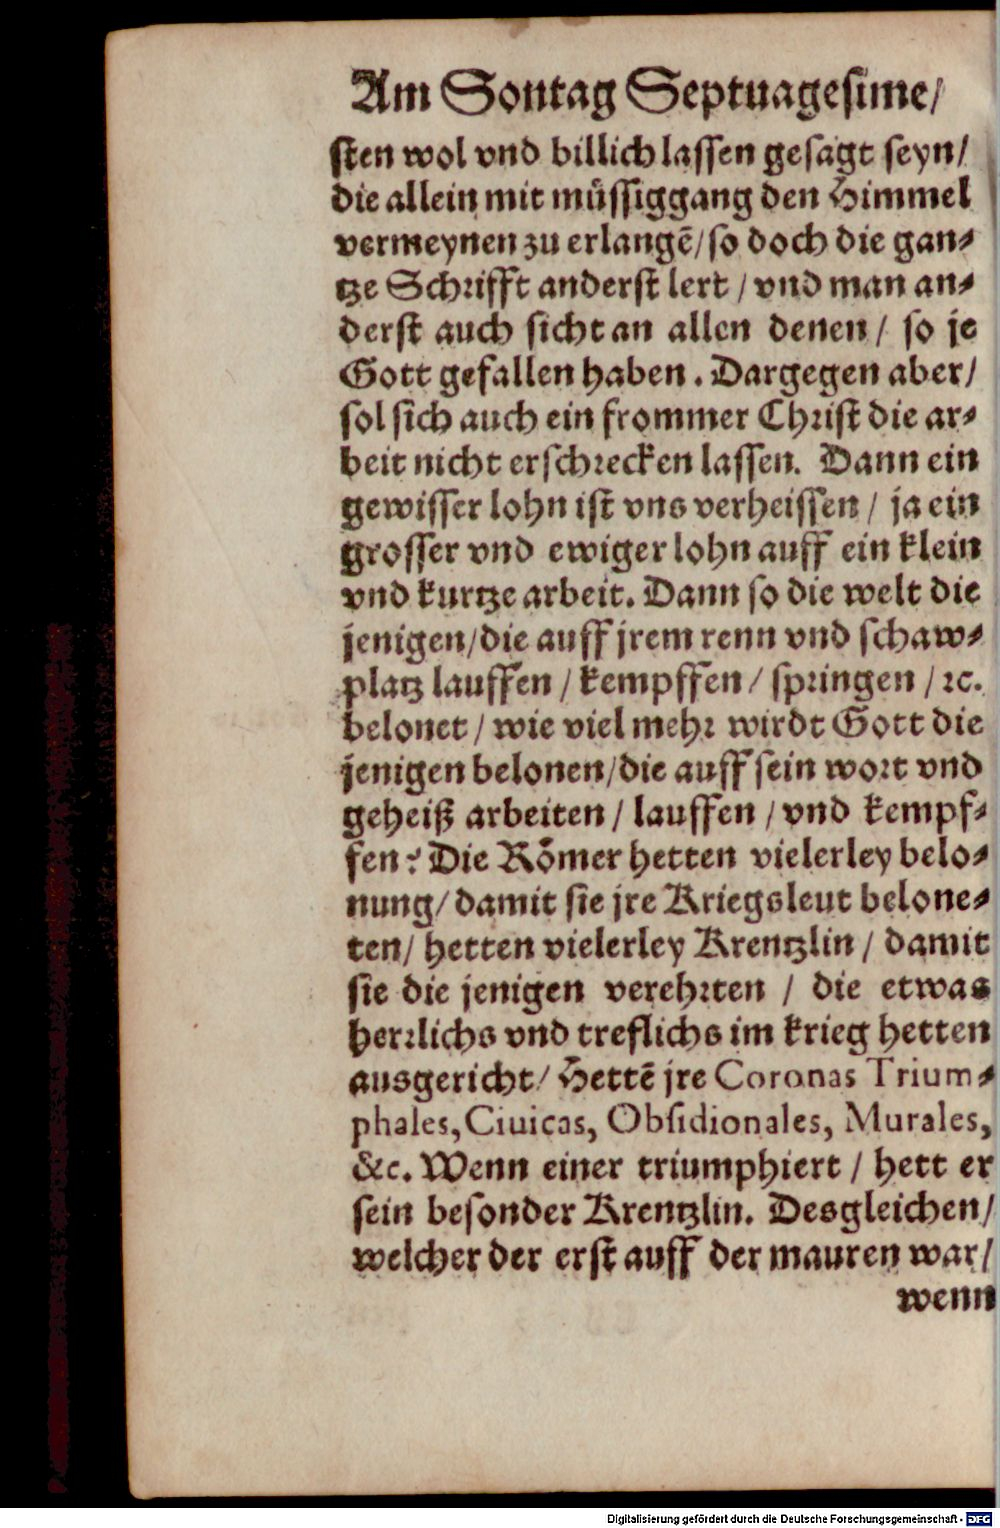 Am Sontag Septuagesime/
sten wol vnd billich lassen gesagt seyn/
die allein mit müssiggang den Himmel
vermeynen zu erlangẽ/ so doch die gan-
tze Schrifft anderst lert / vnd man an-
derst auch sicht an allen denen / so je
Gott gefallen haben. Dargegen aber/
sol sich auch ein frommer Christ die ar-
beit nicht erschrecken lassen. Dann ein
gewisser lohn ist vns verheissen / ja ein
grosser vnd ewiger lohn auff ein klein
vnd kurtze arbeit. Dann so die welt die
jenigen/die auff jrem renn vnd schaw-
platz lauffen / kempffen / springen / ꝛc.
belonet / wie viel mehr wirdt Gott die
jenigen belonen/die auff sein wort vnd
geheiß arbeiten / lauffen / vnd kempf-
fen? Die Römer hetten vielerley belo-
nung/ damit sie jre Kriegsleut belone-
ten/ hetten vielerley Krentzlin / damit
sie die jenigen verehrten / die etwas
herrlichs vnd treflichs im krieg hetten
ausgericht/ Hettẽ jre Coronas Trium-
phales, Ciuicas, Obsidionales, Murales,
&c. Wenn einer triumphiert / hett er
sein besonder Krentzlin. Desgleichen/
welcher der erst auff der mauren war/
wenn
Digitalisierung gefördert durch die Deutsche Forschungsgemeinschaft - DFG